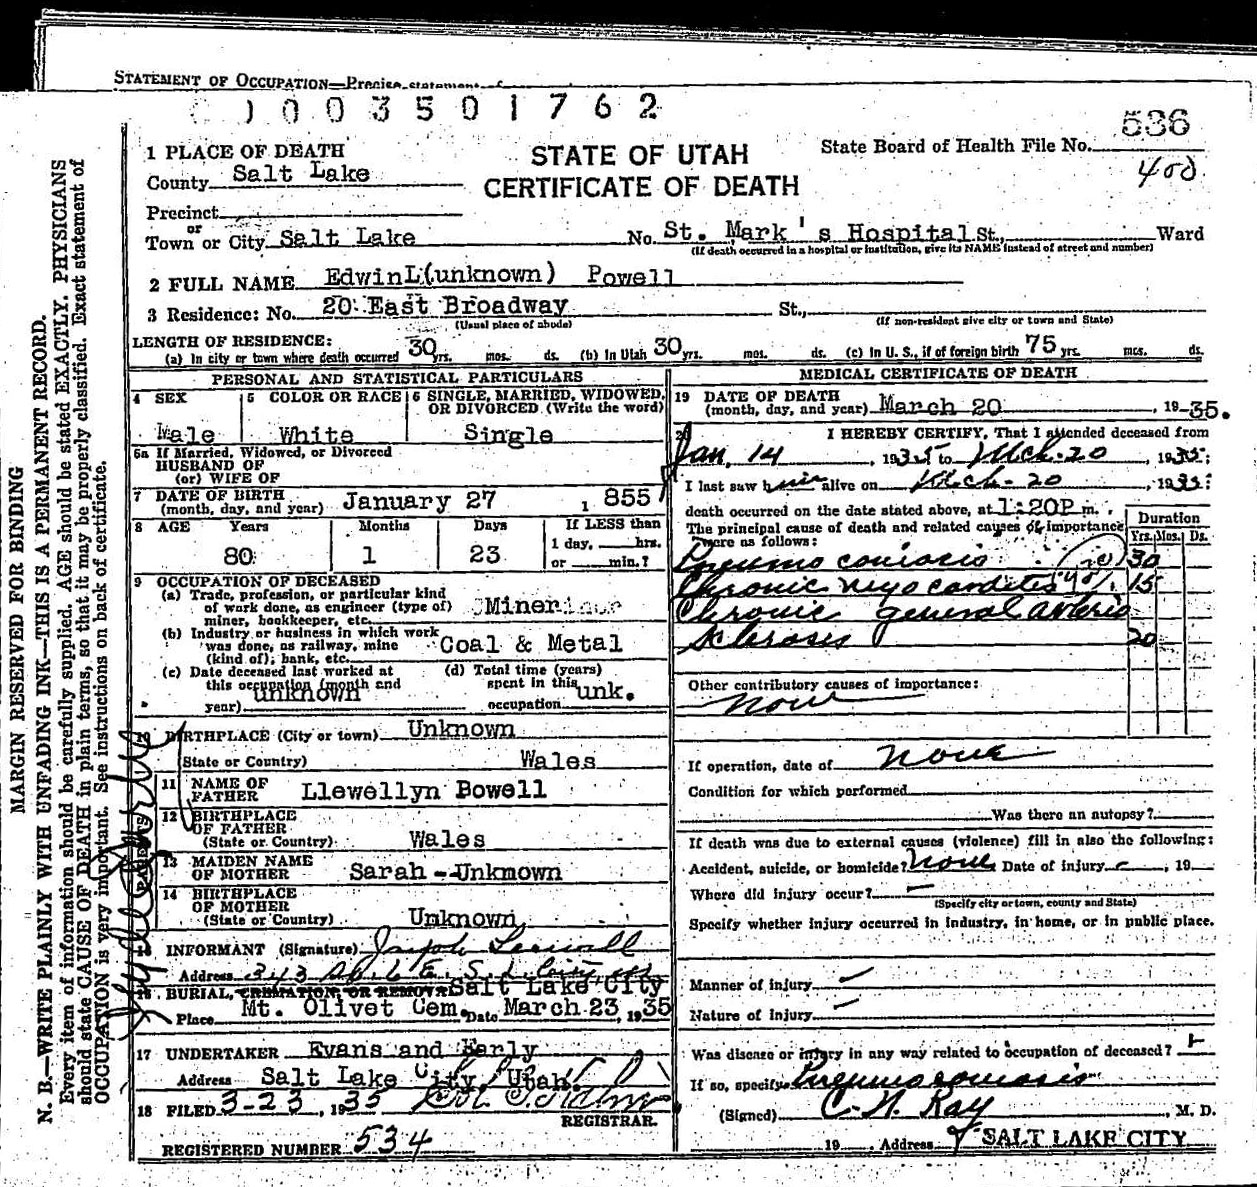 STATEMENT OF OCCUPATION—Precise statement of
0 0 3 5 0 1 7 6 2
536
400
1 PLACE OF DEATH
STATE OF UTAH
CERTIFICATE OF DEATH
State Board of Health File No.
County Salt Lake
Precinct
or
Town or City Salt Lake No. St. Mark's Hospital St., Ward
(If death occurred in a hospital or institution, give its NAME instead of street and number)
2 FULL NAME EdwinL(unknown) Powell
3 Residence: No. 20 East Broadway St.,
(Usual place of abode) (If non-resident give city or town and State)
LENGTH OF RESIDENCE:
(a) In city or town where death occurred 30 yrs. mos. ds. (b) In Utah 30 yrs. mos. ds. (c) In U. S., if of foreign birth 75 yrs. mos. ds.
PERSONAL AND STATISTICAL PARTICULARS
4 SEX 5 COLOR OR RACE 6 SINGLE, MARRIED, WIDOWED, OR DIVORCED (Write the word)
Male White Single
6a If Married, Widowed, or Divorced
HUSBAND OF
(or) WIFE OF
7 DATE OF BIRTH
(month, day, and year) January 27 1 855
8 AGE Years Months Days If LESS than
1 day, hrs.
or min.?
80 1 23
9 OCCUPATION OF DECEASED
(a) Trade, profession, or particular kind
of work done, as engineer (type of)
miner, bookkeeper, etc. Miner
(b) Industry or business in which work
was done, as railway, mine
(kind of); bank, etc. Coal & Metal
(c) Date deceased last worked at
this occupation (month and
year) unknown
(d) Total time (years)
spent in this
occupation unk.
10 BIRTHPLACE (City or town) Unknown
(State or Country) Wales
11 NAME OF
FATHER Llewellyn Bowell
12 BIRTHPLACE
OF FATHER
(State or Country) Wales
13 MAIDEN NAME
OF MOTHER Sarah--Unkmown
14 BIRTHPLACE
OF MOTHER
(State or Country) Unknown
PARENTS
15 INFORMANT (Signature) Joseph
Address 343
16 BURIAL, CREMATION, OR REMOVAL Salt Lake City
Place Mt. Olivet Cem. Date March 23, 1935
17 UNDERTAKER Evans and Early
Address Salt Lake City, Utah.
18 FILED 3-23, 1935
REGISTRAR.
REGISTERED NUMBER 534
MEDICAL CERTIFICATE OF DEATH
19 DATE OF DEATH
(month, day, and year) March 20, 19-35.
20 I HEREBY CERTIFY, That I attended deceased from
Jan, 14, 1935 to Mch-20, 1935;
I last saw him alive on Mch-20, 1935;
death occurred on the date stated above, at 1:20P m.
The principal cause of death and related causes of importance
were as follows:
Duration
Yrs. Mos. Ds.
Pneumoconiosis 30
Chronic myocarditis 15
Chronic general arterio
sclerosis 20
Other contributory causes of importance:
None
If operation, date of None
Condition for which performed
Was there an autopsy?
If death was due to external causes (violence) fill in also the following:
Accident, suicide, or homicide? None Date of injury - , 19
Where did injury occur? -
(Specify city or town, county and State)
Specify whether injury occurred in industry, in home, or in public place.
Manner of injury -
Nature of injury -
Was disease or injury in any way related to occupation of deceased?
If so, specify Pneumoconiosis
(Signed) C. N. Ray, M. D.
19 Address SALT LAKE CITY
MARGIN RESERVED FOR BINDING
N. B.—WRITE PLAINLY WITH UNFADING INK—THIS IS A PERMANENT RECORD.
Every item of information should be carefully supplied. AGE should be stated EXACTLY. PHYSICIANS
should state CAUSE OF DEATH in plain terms, so that it may be properly classified. Exact statement of
OCCUPATION is very important. See instructions on back of certificate.